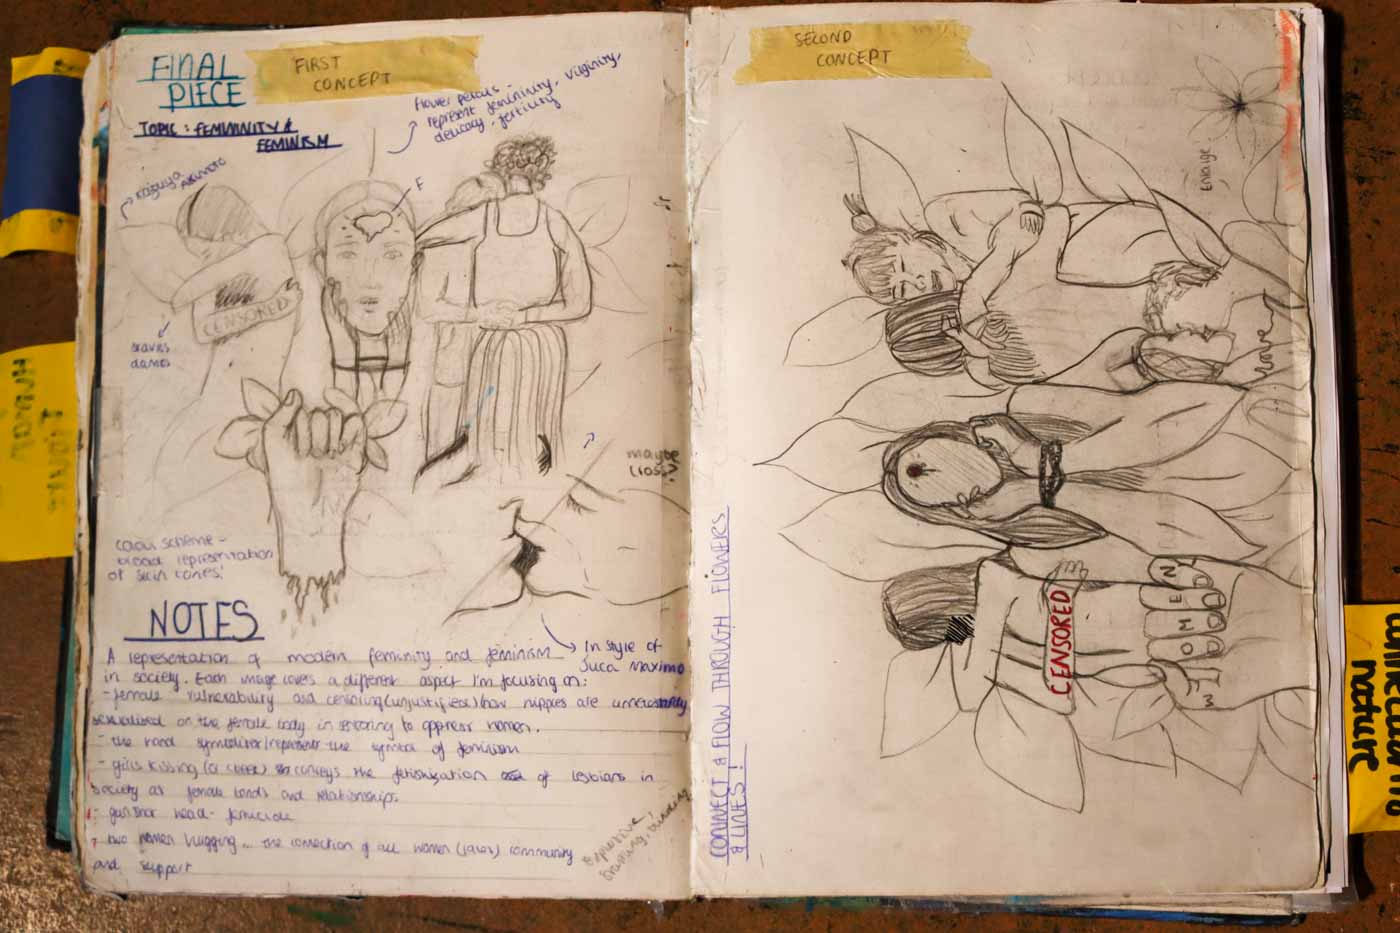 FINAL
PIECE
FIRST
CONCEPT
TOPIC : FEMININITY &
FEMINISM
flower petals -
represent femininity, virginity,
delicacy, fertility
F
CENSORED
maybe
colour scheme -
broad representation
of skin tones!
NOTES
A representation of modern feminity and feminism
in society. Each image covers a different aspect I'm focusing on:
- female vulnerability and censoring (unjustified) how nipples are
sexualised on the female body in to oppress women.
- the hand symbolises/represent the symbol of feminism
- girls kissing (or conveys the fetishisation of lesbians in
society as female bonds and relationships.
- head - femicide
- two women hugging ... the connection of all women community
and support
In style of
Juca Maximo
Expressive,
SECOND
CONCEPT
Enlarge
CENSORED
WOMEN
CONNECT & FLOW THROUGH FLOWERS
& LINES!
nature